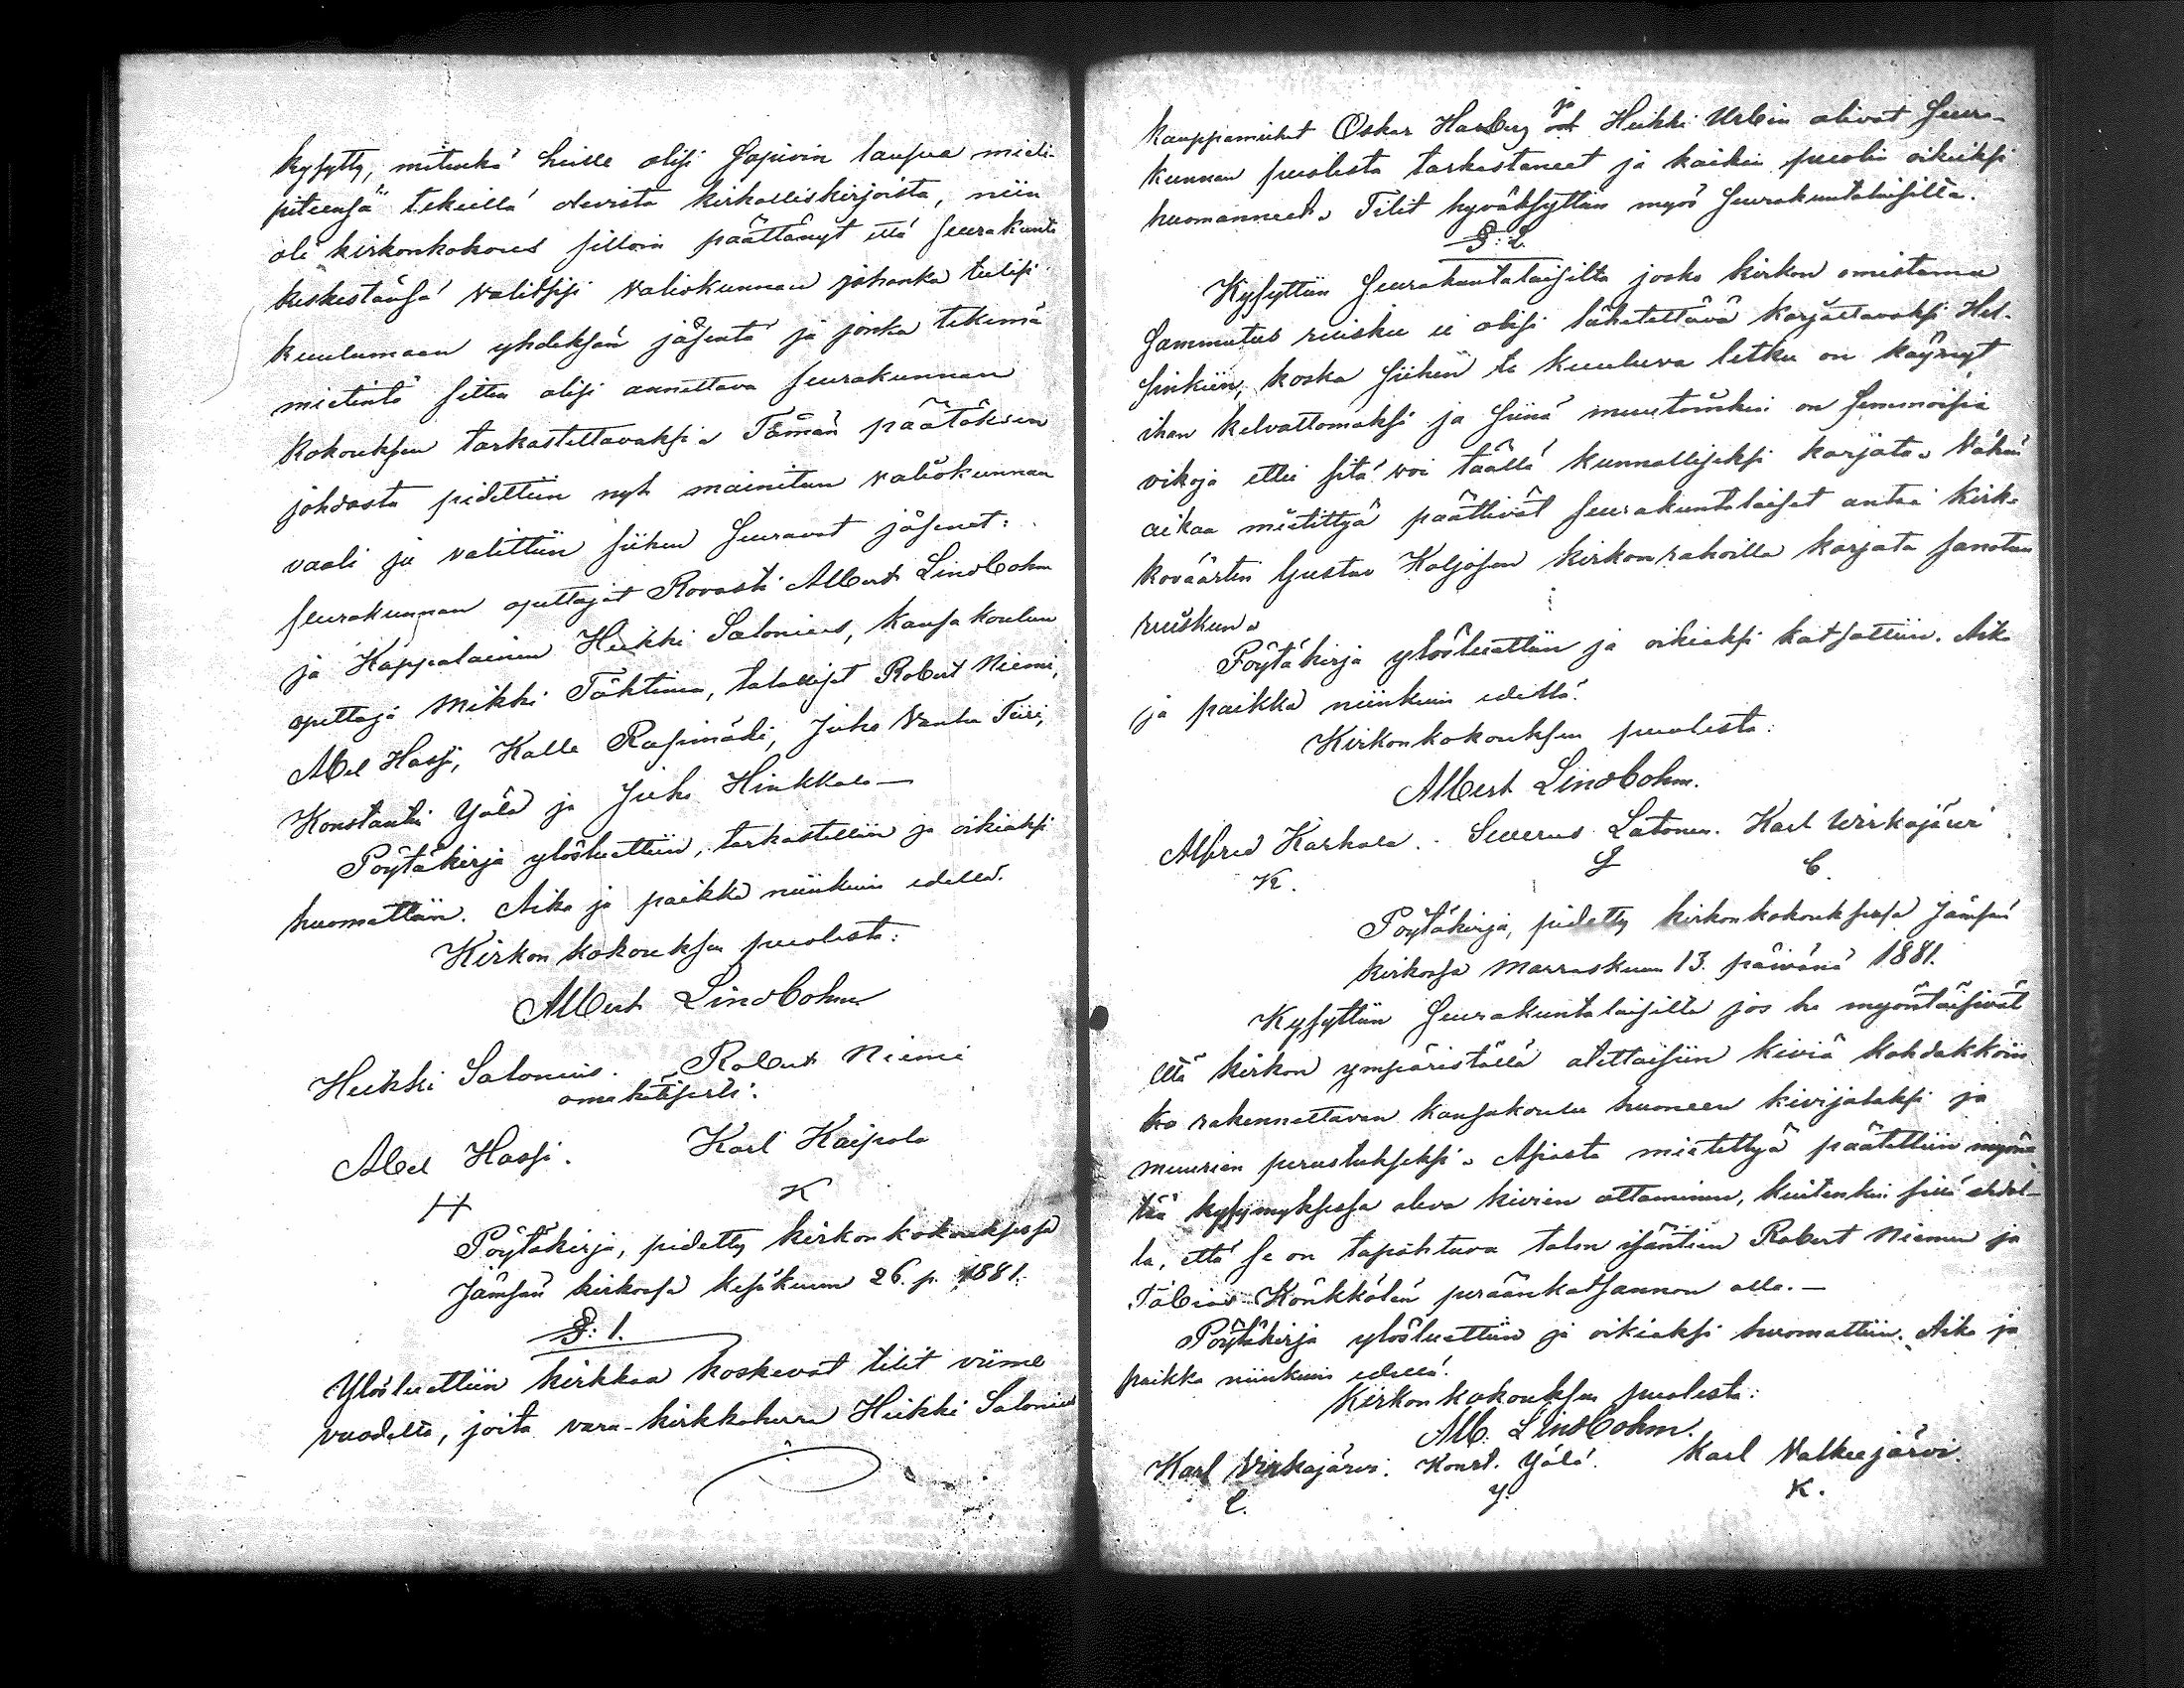 kysytty, mitenkä heille olisi sopivin lausua mieli-
piteensä tekeillä olevista kirkolliskirjoista, niin
oli kirkonkokous silloin päättänyt että seurakunta
keskestänsä valitsisi valiokunnan johonka tulisi
kuulumaan yhdeksän jäsentä ja jonka tekemä
mietintö sitten olisi annettava seurakunnan
kokouksen tarkastettavaksi. Tämän päätöksen
johdosta pidettiin nyt mainitun valiokunnan
vaali ja valittiin siihen seuravat jäsenet:
seurakunnan opettajat Rovasti Albert Lindbohm
ja Kappalainen Heikki Salonius, kansakoulun
opettaja Mikki Tähtinen, talolliset Robert Niemi,
Abel Hassi, Kalle Rusimäki, Juho Vanha Tiiri,
Konstantin Ylä ja Juho Hinkkala —
Pöytäkirja ylösluettiin, tarkastettiin ja oikiaksi
huomattiin. Aika ja paikka niinkuin edellä.
Kirkon kokouksen puolesta:
Albert Lindbohm
Heikki Salonius. Robert Niemi
omakätisesti:
Abel Hassi. Karl Kaipola
H K
Pöytäkirja, pidetty kirkonkokouksessa
Jämsän kirkossa kesäkuun 26. p. 1881.
§: 1.
Ylösluettiin kirkkoa koskevat tilit viime
vuodelta, joita vara-kirkkoherra Heikki Salonius
kauppamiehet Oskar Harberg ja Heikki Urbin olivat seura-
kunnan puolesta tarkastaneet ja kaikin puolin oikeiksi
huomanneet. Tilit hyväksyttiin myös seurakuntalaisilta.
§: 2.
Kysyttiin seurakuntalaisilta josko kirkon omistama
sammutus ruisku ei olisi lähetettävä korjattavaksi Hel-
sinkiin, koska siihen kuuluva letku on käynyt
ihan kelvottomaksi ja siinä muutoinkin on semmoisia
vikoja ettei sitä voi täällä kunnolliseksi korjata. Vähän
aikaa mietittyä päättivät seurakuntalaiset antaa kirk-
koväärtin Gustav Koljosen kirkon rahoilla korjata sanotun
ruiskun.
Pöytäkirja ylösluettiin ja oikiaksi katsottiin. Aika
ja paikka niinkuin edellä.
Kirkonkokouksen puolesta:
Albert Lindbohm.
Alfred Karkala. Severus Latonen. Karl Wirkajärvi
K. L C.
Pöytäkirja, pidetty kirkonkokouksessa Jämsän
kirkossa Marraskuun 13. päivänä 1881.
Kysyttiin seurakuntalaisilta jos he myöntäisivät
että kirkon ympäristöllä otettaisiin kiviä kohdakkoin
rakennettavan kansakoulu huoneen kivijalaksi ja
muurien perustukseksi. Asiasta mietittyä päätettiin myön-
tää kysymyksessä oleva kivien ottaminen, kuitenkin sillä ehdol-
la, että se on tapahtuva talon isäntien Robert Niemen ja
Tobias Könkkölän peräänkatsannon alla. —
Pöytäkirja ylösluettiin ja oikiaksi huomattiin. Aika ja
paikka niinkuin edellä.
Kirkonkokouksen puolesta:
Alb. Lindbohm.
Karl Virkajärvi. Konst. Ylä. Karl Valkeejärvi.
C. Y. K.